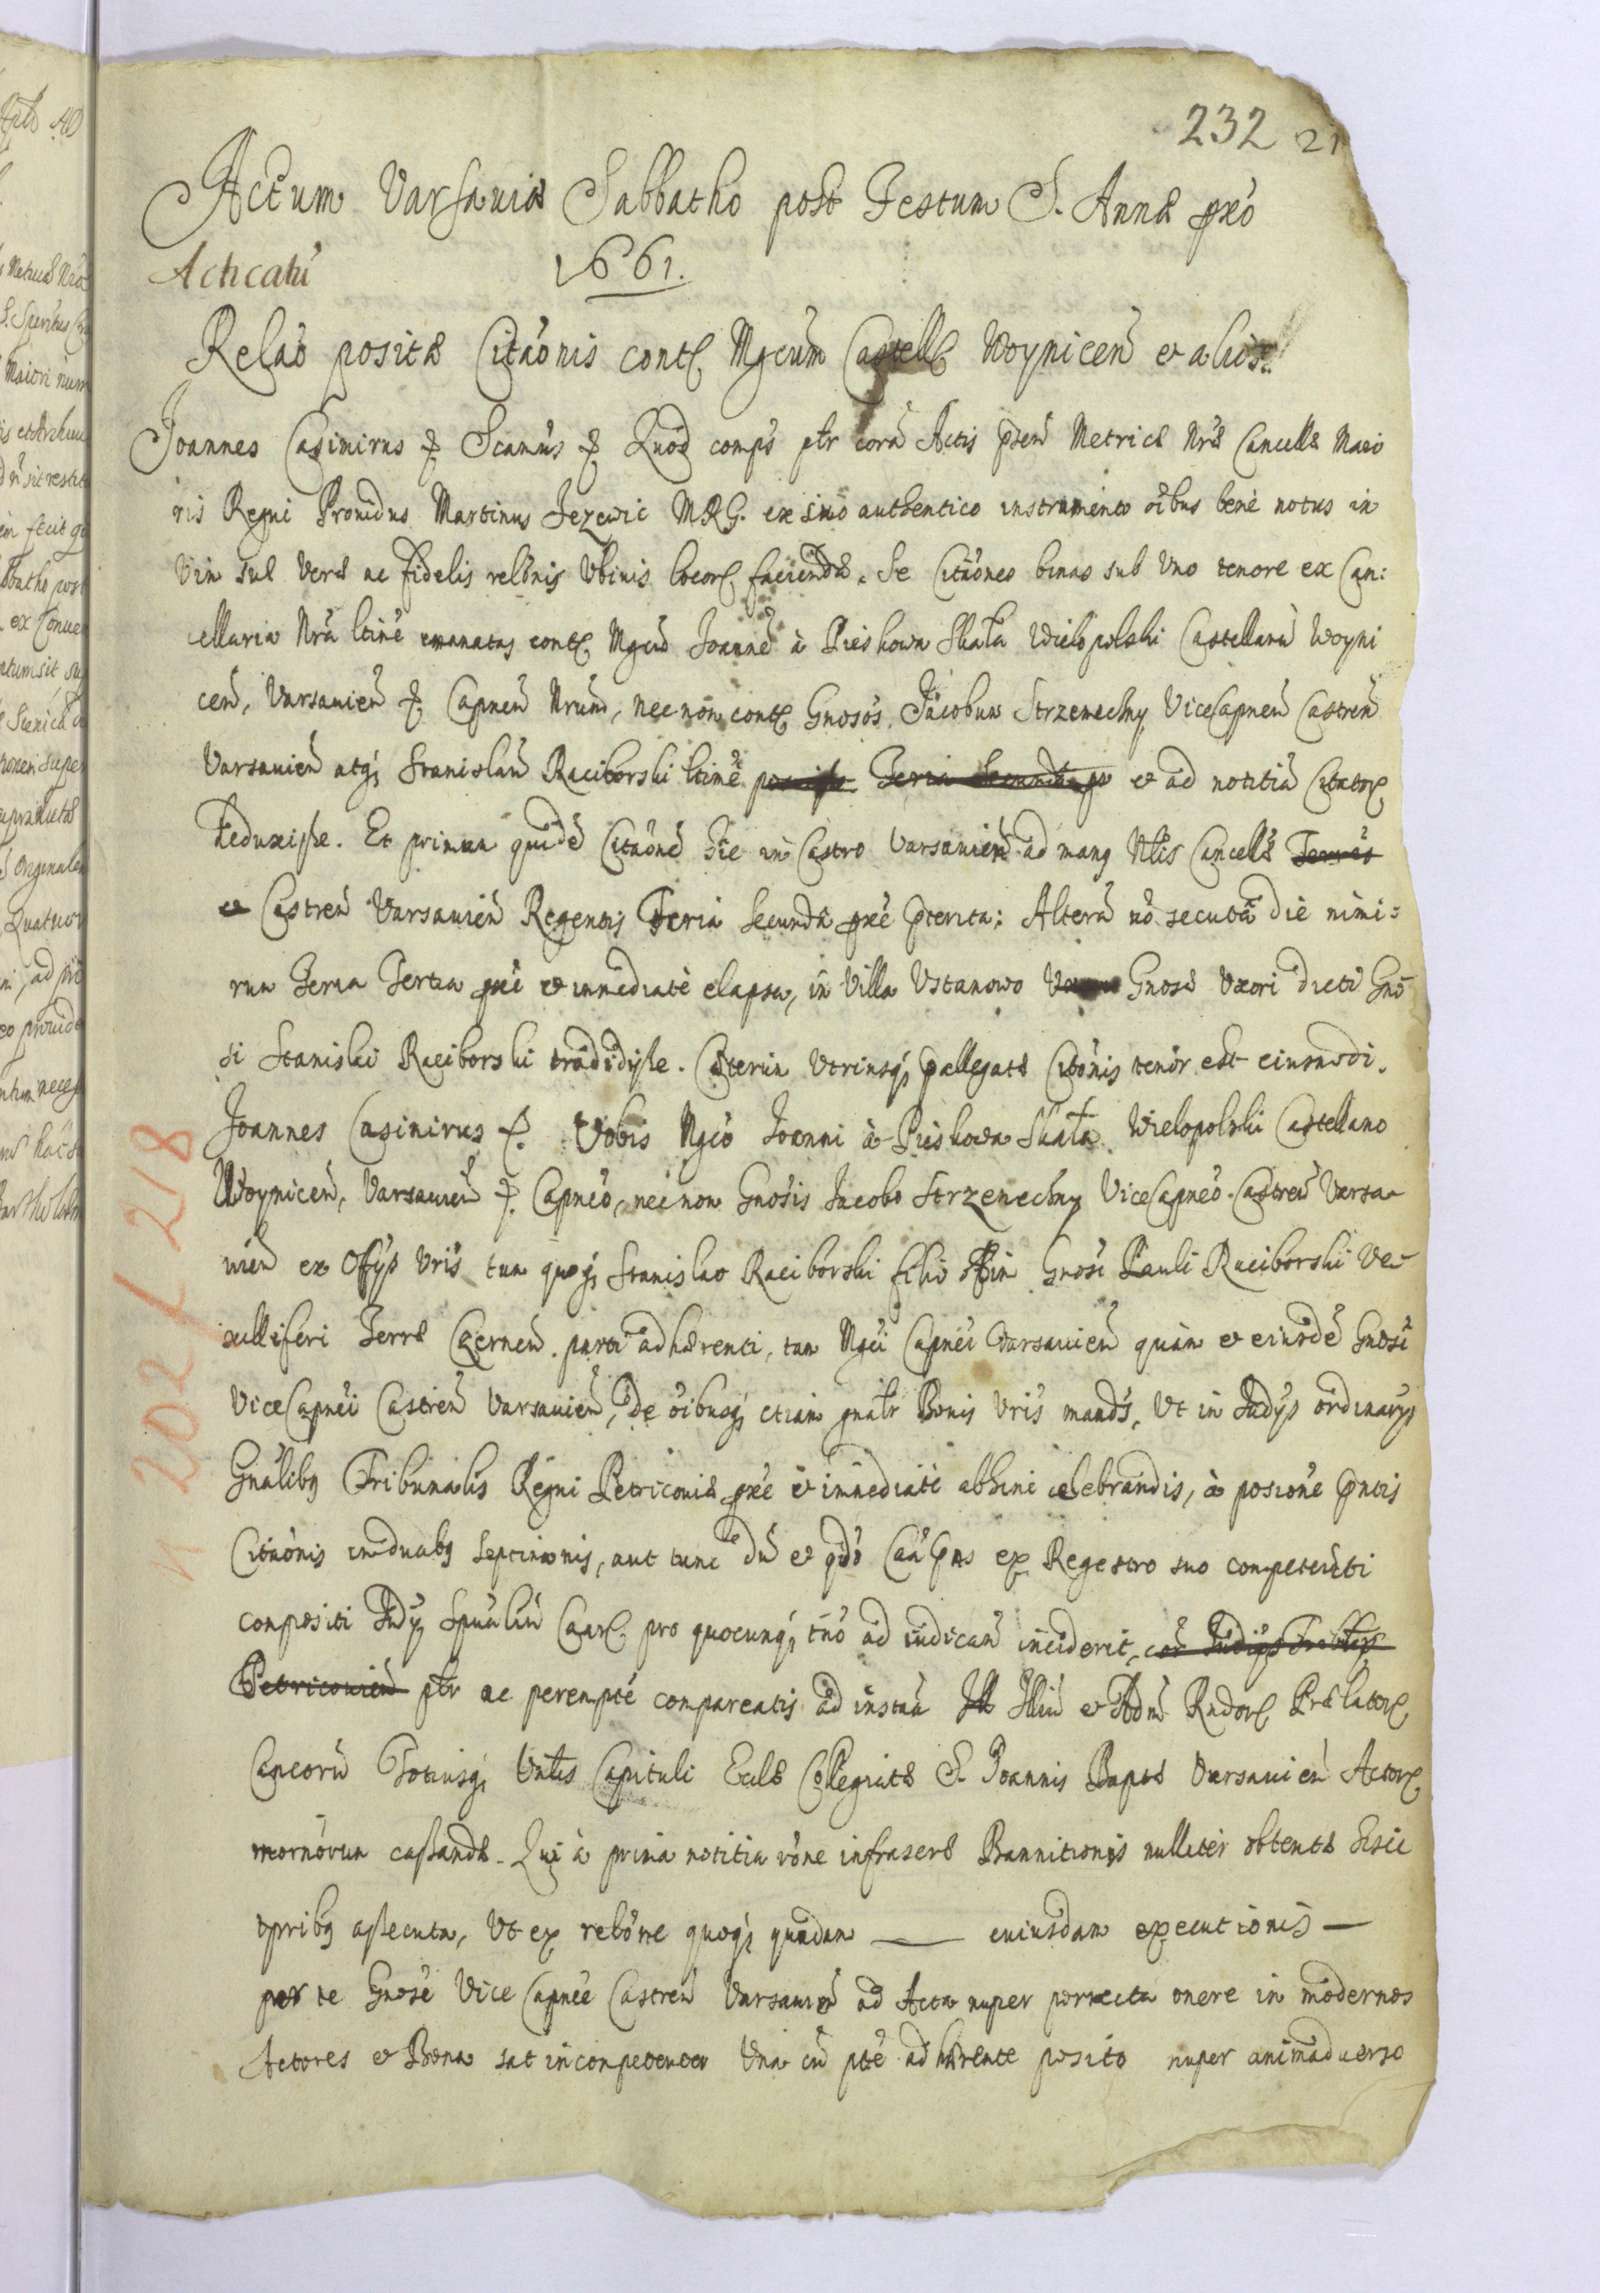 232 21
Actum Varsaviæ Sabbatho post Festum S. Annæ pxo
Acticatũ 1661.
Relaõ positæ Citaõnis cont Mgcũm Castell Woynicen̄ et alios.
Joannes Casimirus & Scamũs & Quod comps ptr corã Actis pn̄ Metricæ Nræ Cancellæ Maio
ris Regni Providus Martinus Jezewic MRG. ex suo authentico instrumento oĩbus benè notus in
Vim suæ veræ ac fidelis relõnis Vbivis locor faciendæ. Se Citaõnes binas sub Vno tenore ex Can:
cellaria Nrã ltinē emanatas cont Mgcũ Joannē à Pieskowa Skała Wielopolski Castellanũ Woyni
cen̄, Varsavien̄ & Capneũ Nrum, nec non cont Gnosos Jacobum Strzemechny ViceCapneũ Castren̄
Varsavien̄ atq; Stanislaũ Raciborski ltinē et ad notitiã Citator
deduxisse. Et primam quidē Citaõnē hic in Castro Varsavien̄ ad man9 Nblis Cancellæ Terr̄is
et Castren̄ Varsavien̄ Regentis Feria Secunda pxē pterita: Alterã vō secutã die nimi:
rum Feria Tertia pxē et immediatè elapsa, in Villa Vstanowo Gnosæ Vxori dicti Gno
si Stanislai Raciborski tradidisse. Cæterum Vtriusq; pallegatæ Citõnis tenor est eiusmodi.
Joannes Casimirus &. Vobis Mgco Joanni à Pieskowa Skała Wielopolski Castellano
Woynicen̄, Varsavien̄ & Capneo, nec non Gnosis Jacobo Strzemechny ViceCapneo Castren̄ Varsa
vien̄ ex Offys Vris tum quoq; Stanislao Raciborski filio olim Gnosi Pauli Raciborski Ve-
xilliferi Terræ Czernen̄. parti adhærenti, tam Mgci Capnei Varsavien̄ quàm et eiusdē Gnosi
ViceCapnei Castren̄ Varsavien̄, De oĩbusq; etiam gnaltr Bonis Vris mands, Vt in Judys ordinarys
Gnalib9 Tribunalis Regni Petricoviæ pxē et immediatè abhinc celebrandis, à posione pntis
Citaõnis in duab9 septimanis, aut tunc dũ et qdo Caã pns ex Regestro suo competenti
compositi Judy Spualiũ Caar. pro quocunq; tnō ad iudican̄ inciderit, cor Judiys Trabltys
Petricovien̄ ptr ac perempte compareatis ad instan̄ Jll Jlliũ et Adm Rndor Prælator
Canoorũ Totiusq; Vnlis Capituli Ecclæ Collegiatæ S. Joannis Baptæ Varsavien̄ Actor
cassandæ. Qui à prima notitia rõne infrascrē Bannitionis nulliter obtentæ
assecuta, Vt ex relõne quoq; quadam — cuiusdam executionis —
per te Gnose Vice Capnee Castren̄ Varsavien̄ ad Acta nuper porrecta onere in modernos
Actores et Bona sat incompetenter Vna cũ ptē adhærente posito nuper animadverso
N 202 / 218